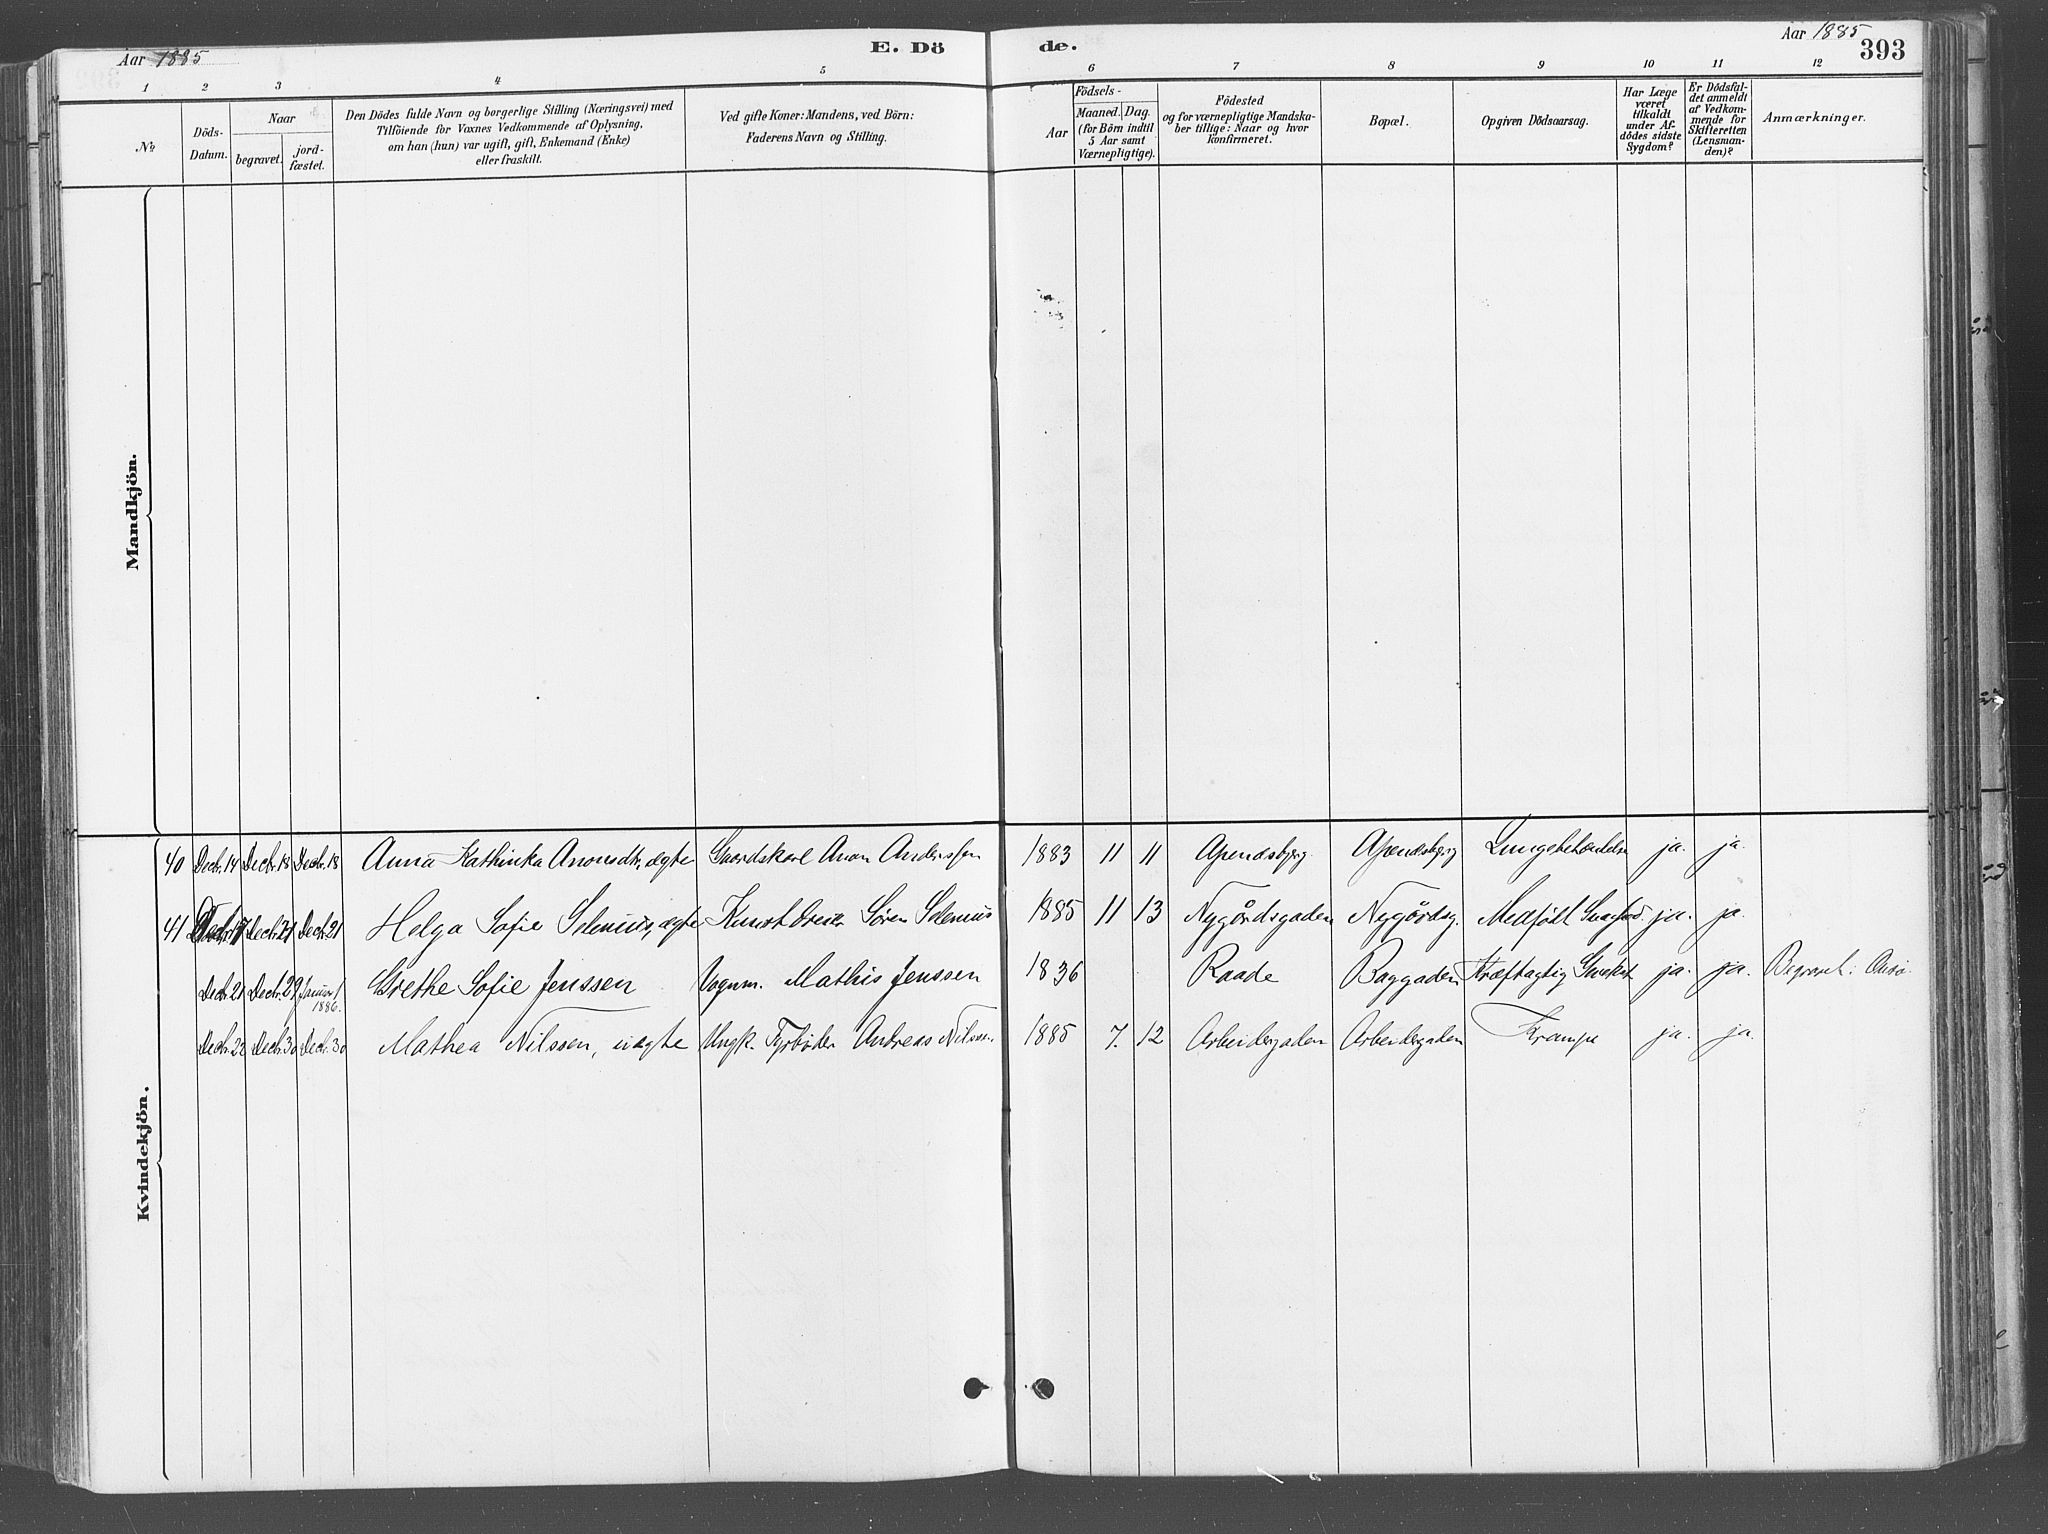 Aar 1885 E. Dö de. Aar 1885 393
1 2 3 4 5 6 7 8 9 10 11 12
№ Döds-Datum. Naar begravet. jord-fæstet.
Den Dödes fulde Navn og borgerlige Stilling (Næringsvei) med
Tilföiende for Voxnes Vedkommende af Oplysning,
om han (hun) var ugift, gift, Enkemand (Enke)
eller fraskilt.
Ved gifte Koner: Mandens, ved Börn:
Faderens Navn og Stilling.
Aar
Födsels-
Maaned. Dag.
(for Börn indtil
5 Aar samt
Værnepligtige).
Födested
og for værnepligtige Mandska-
ber tillige: Naar og hvor
konfirmeret.
Bopæl.
Opgiven Dödsaarsag.
Har Læge
været
tilkaldt
under Af-
dödes sidste
Sygdom?
Er Dödsfal-
det anmeldt
af Vedkom-
mende for
Skifteretten
(Lensman-
den)?
Anmærkninger.
Mandkjön.
Kvindekjön.
40 Decbr. 14 Decbr. 18 Decbr. 18 Anna Kathinka ægte Anderssen 1883 11 11 Apenæsbjerg Apenæsbjerg ja. ja.
41 Decbr. 17 Decbr. 21 Decbr. 21 Helga Sofie Selenius, ægte Søren Selenius 1885 11 13 Nygårdsgaden Nygårdsg. Medfödt ja. ja.
Decbr. 21 Decbr. 29 Januar 1 1886. Grethe Sofie Jenssen Vognm. Mathis Jenssen 1836 Raade Baggaden Kræftagtig ja. ja. Begravet i Onsö
Decbr. 22 Decbr. 30 Decbr. 30 Mathea Nilssen, uægte Ungk. Fyrböder Andreas Nilssen. 1885 7. 12 Arbeidergaden Arbeidergaden Krampe ja. ja.